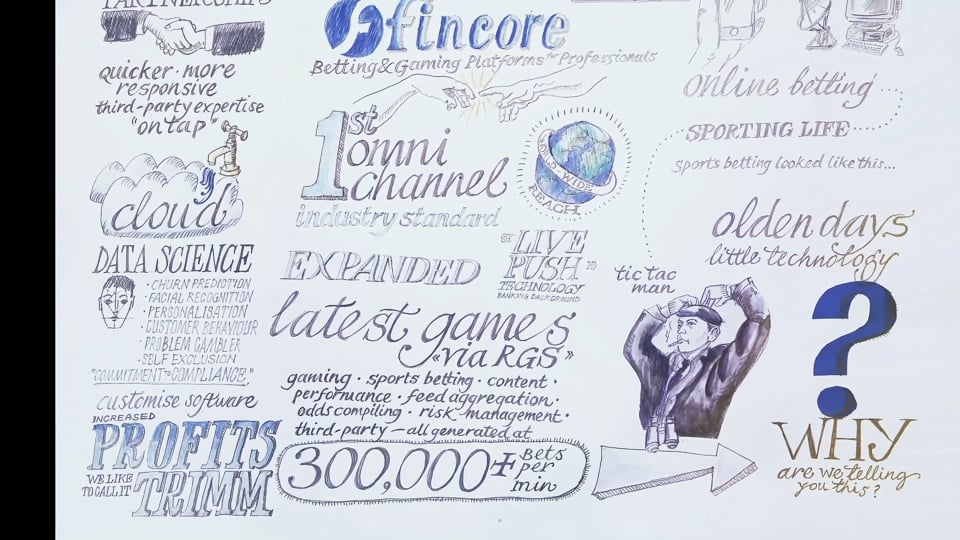 PARTNERSHIPS
quicker · more
responsive
third-party expertise
"on tap"
cloud
DATA SCIENCE
· CHURN PREDICTION
· FACIAL RECOGNITION
· PERSONALISATION
· CUSTOMER BEHAVIOUR
· PROBLEM GAMBLER
· SELF EXCLUSION
"COMMITMENT TO COMPLIANCE"
customise software
INCREASED
PROFITS
WE LIKE
TO CALL IT
TRIMM
fincore
Betting & Gaming Platforms for Professionals
1st
omni
channel
industry standard
WORLD WIDE
REACH
EXPANDED
"LIVE
PUSH"
TECHNOLOGY
BANKING BACKGROUND
latest games
"via RGS"
gaming · sports betting · content ·
performance · feed aggregation ·
odds compiling · risk management ·
third-party — all generated at
300,000+
Bets
per
min
online betting
SPORTING LIFE
sports betting looked like this...
olden days
little technology
tic tac
man
?
WHY
are we telling
you this?